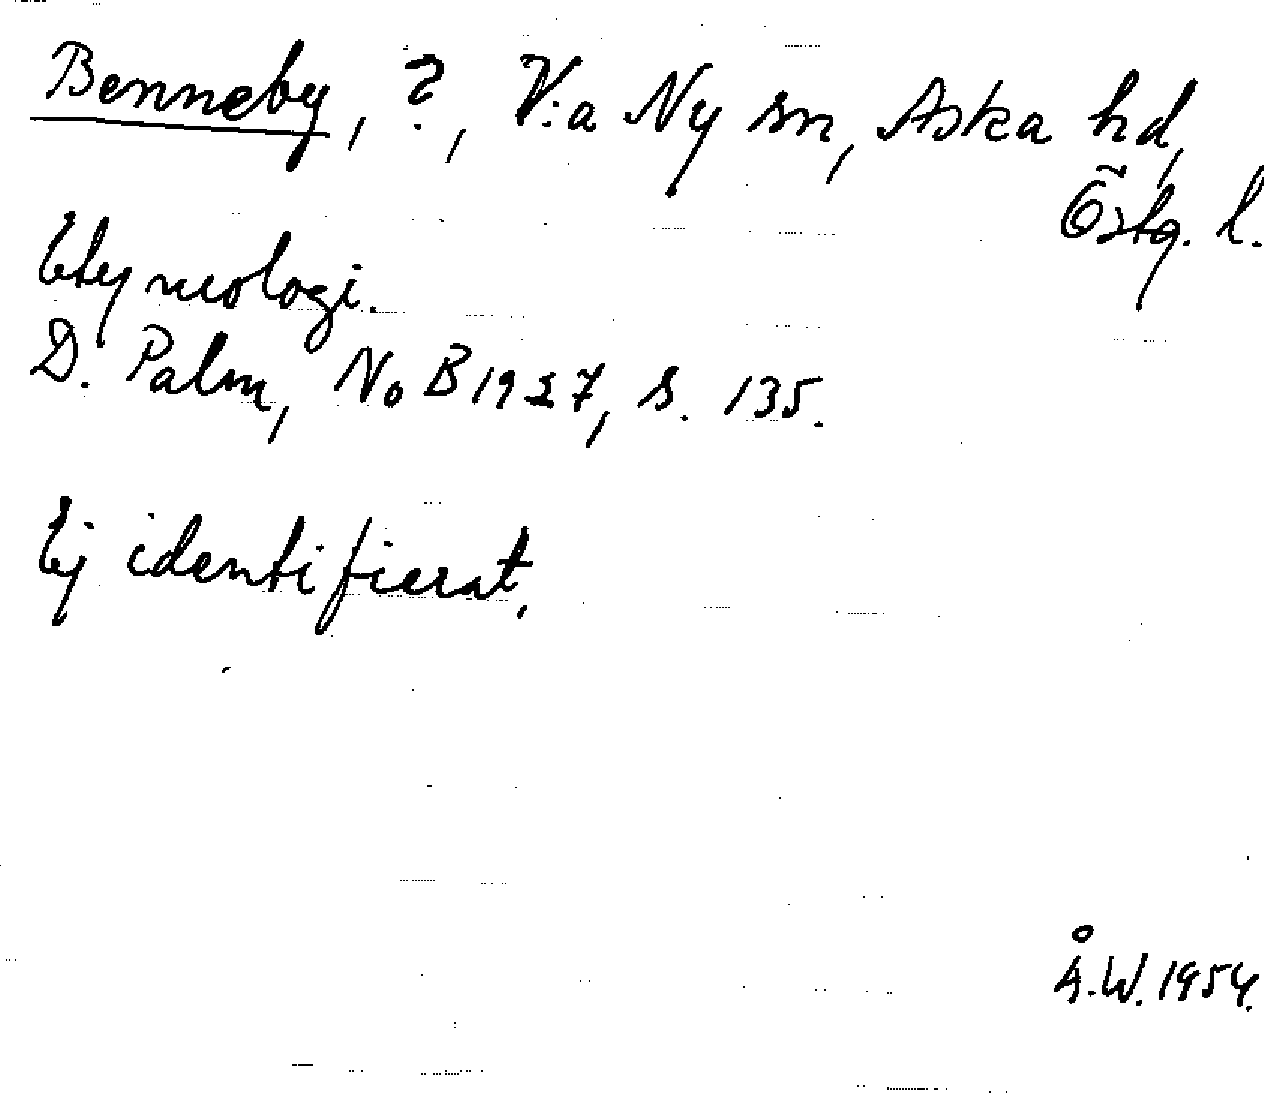 Benneby, ?, V:a Ny sn, Aska hd,
Östg. l.
Etymologi.
D. Palm, NoB 1937, s. 135.
Ej identifierat.
Å.W. 1954.